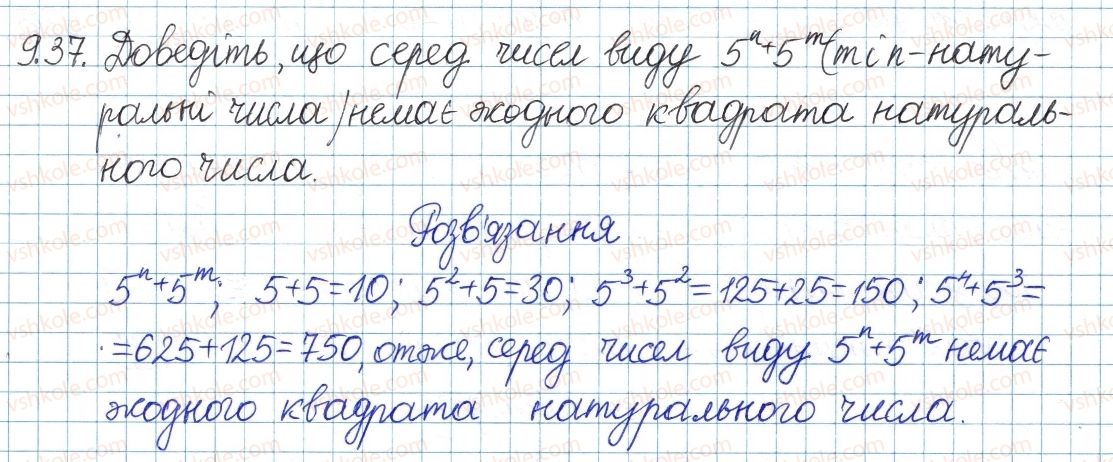 9.37. Доведіть, що серед чисел виду 5ⁿ+5ᵐ(m і n-нату-
ральні числа/немає жодного квадрата натураль-
ного числа.
Розв'язання
5ⁿ+5ᵐ; 5+5=10; 5²+5=30; 5³+5²=125+25=150; 5⁴+5³=
=625+125=750, отже, серед чисел виду 5ⁿ+5ᵐ немає
жодного квадрата натурального числа.